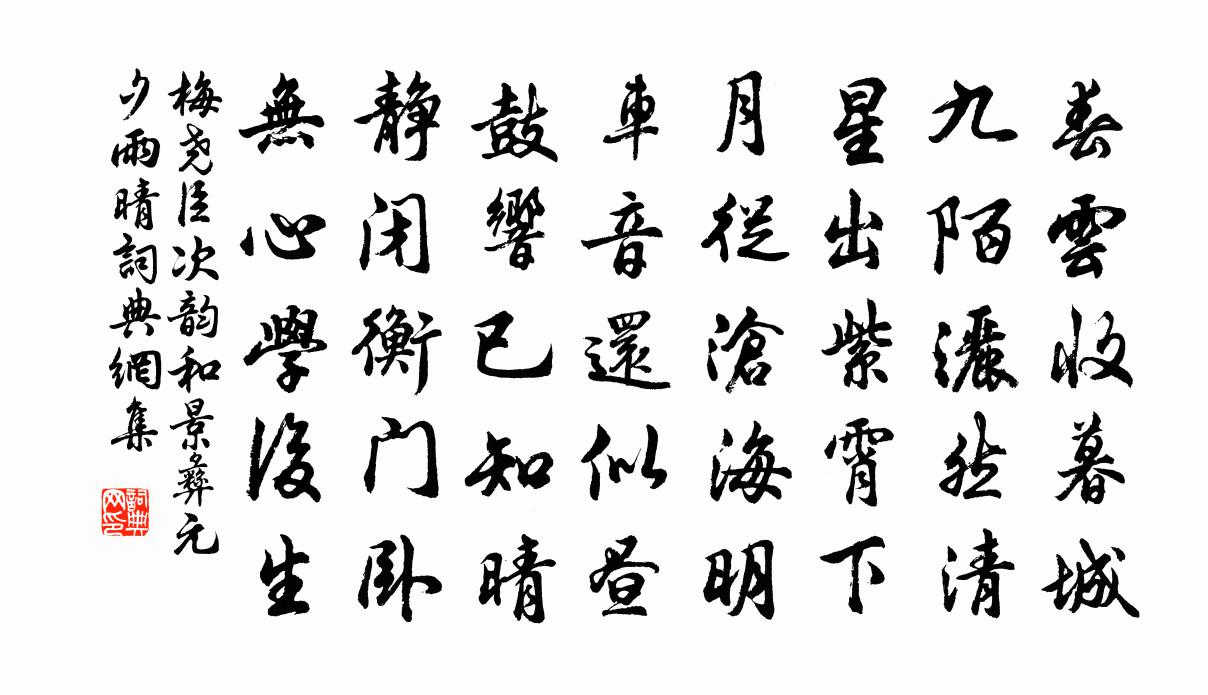 春雲收暮城
九陌灑然清
星出紫霄下
月從滄海明
車音還似晝
鼓響已知晴
靜閉衡门卧
無心學後生
梅尧臣次韵和景彝元
夕雨晴詞典網集
詞典
网印